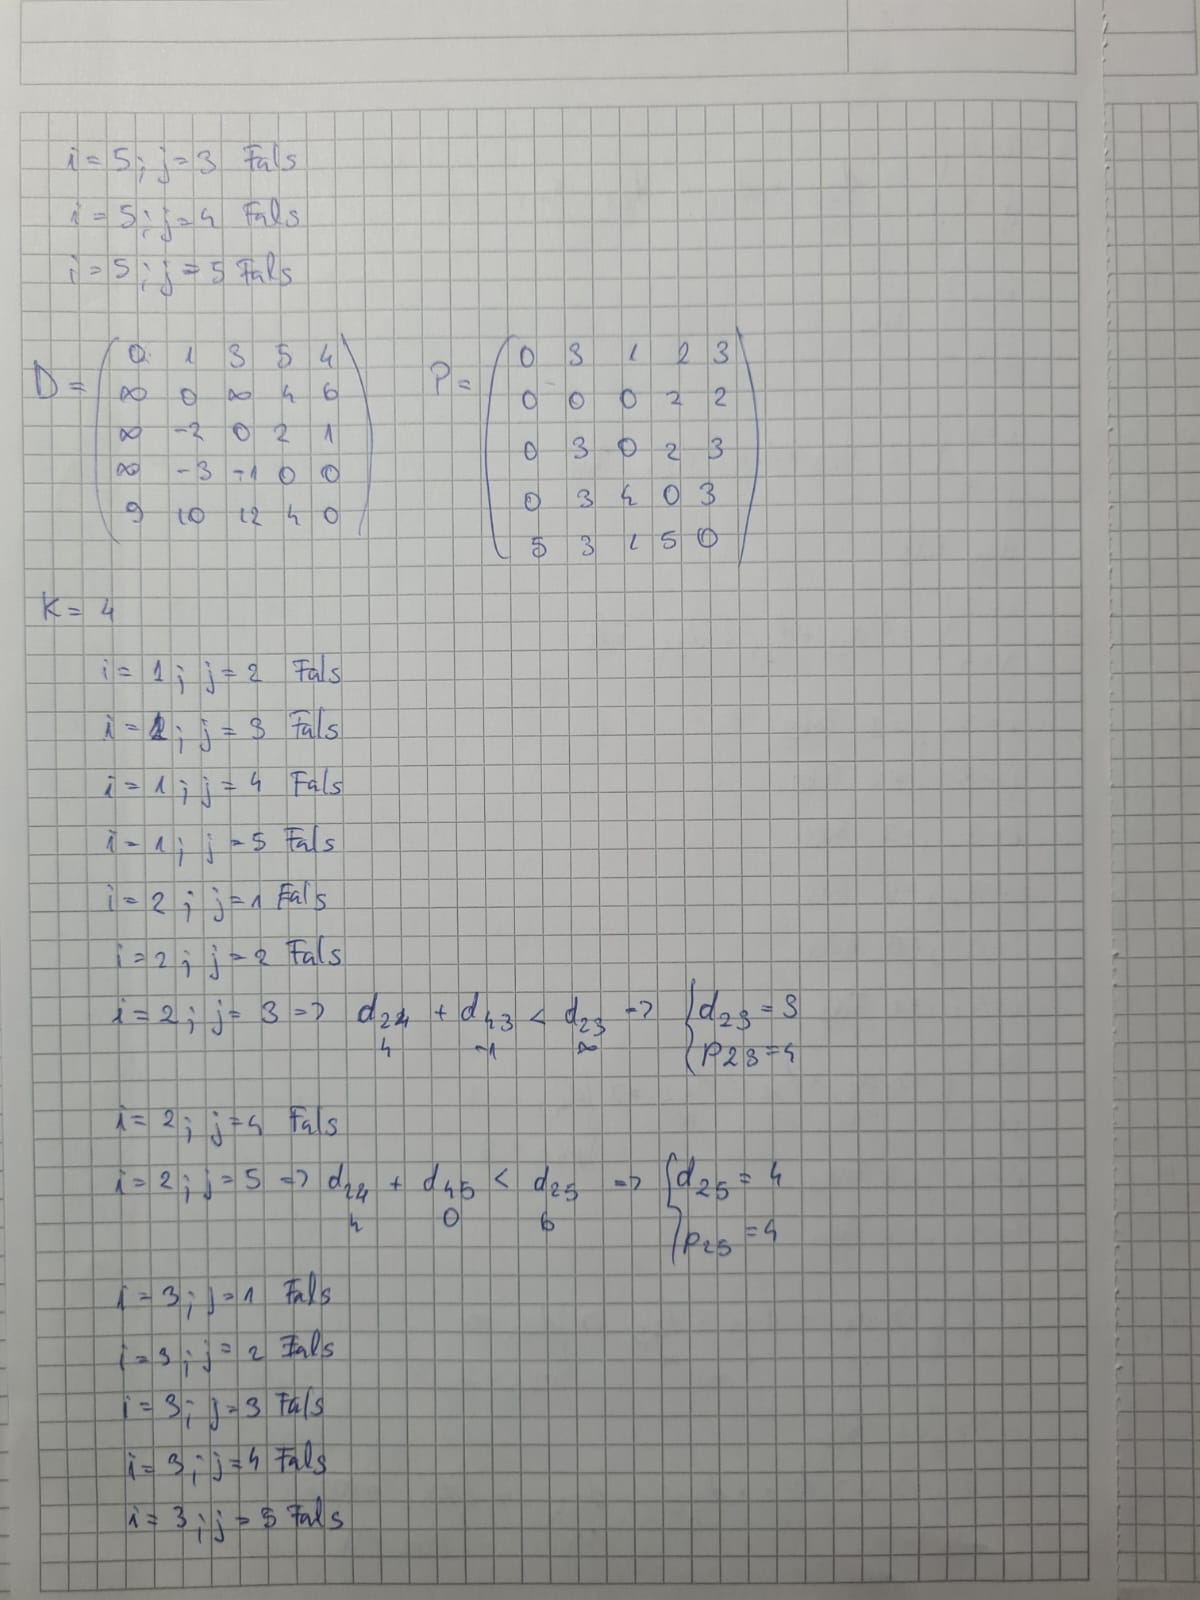 i = 5; j = 3 Fals
i = 5; j = 4 Fals
i = 5; j = 5 Fals
D = ( 0 1 3 5 4 P = ( 0 3 1 2 3
∞ 0 ∞ 4 6 0 0 0 2 2
∞ -2 0 2 1 0 3 0 2 3
∞ -3 -1 0 0 0 3 4 0 3
9 10 12 4 0 ) 5 3 1 5 0 )
K = 4
i = 1; j = 2 Fals
i = 1; j = 3 Fals
i = 1; j = 4 Fals
i = 1; j = 5 Fals
i = 2; j = 1 Fals
i = 2; j = 2 Fals
i = 2; j = 3 => d24 + d43 < d23 => { d23 = 3
4 -1 ∞ p23 = 4
i = 2; j = 4 Fals
i = 2; j = 5 => d24 + d45 < d25 => { d25 = 4
4 0 6 p25 = 4
i = 3; j = 1 Fals
i = 3; j = 2 Fals
i = 3; j = 3 Fals
i = 3; j = 4 Fals
i = 3; j = 5 Fals